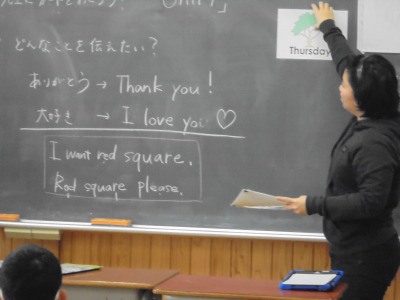 Unit 7
どんなことを伝えたい？
ありがとう → Thank you!
大好き → I love you ♡
I want red square.
Red square please.
Thursday